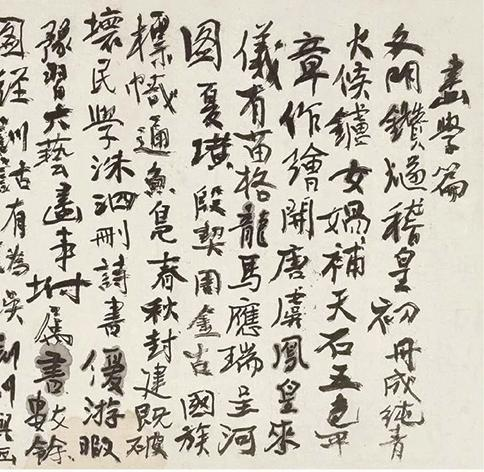 畫學篇
文明鑽燧稽皇初丹成純青
火候鑪女媧補天石五色平
章作繪開唐虞鳳皇來
儀有苗格龍馬應瑞呈河
圖夏璜殷契周金古國族
標幟通魚鳧春秋封建既破
壞民學洙泗刪詩書優游暇
豫習六藝畫事坿屬書數餘
圖經